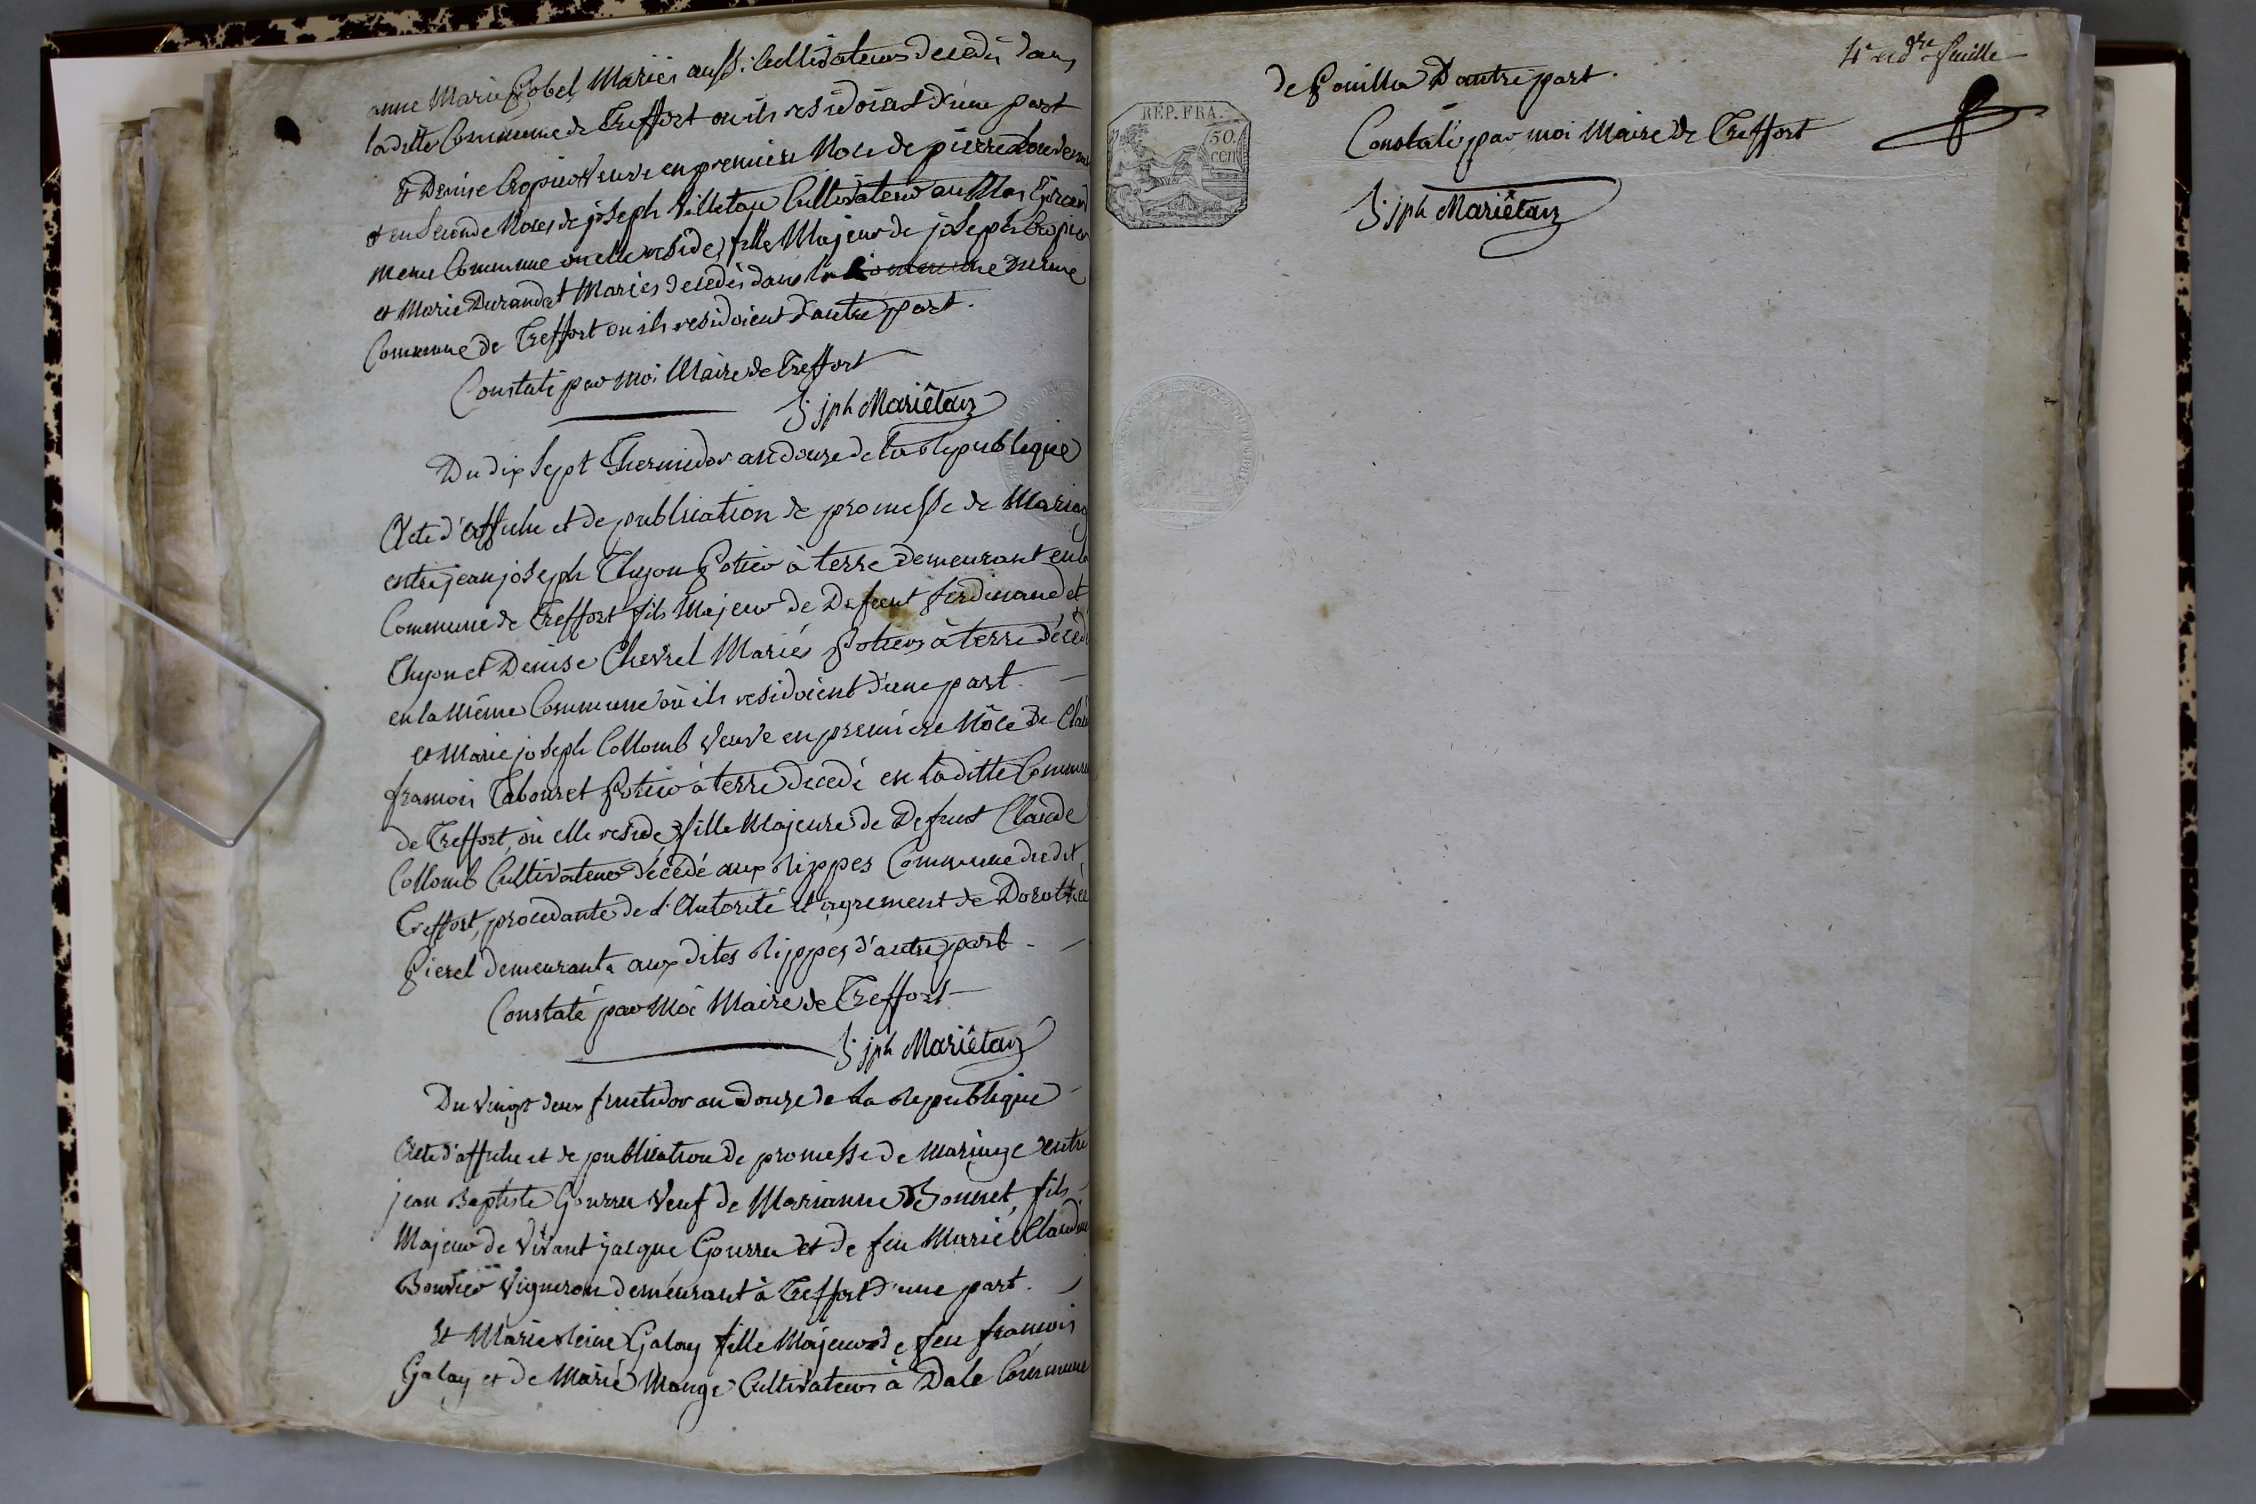 anne Marie Gobel Mariés aussi Cultivateurs decedés dans
laditte Commune de Treffort ou ils residoient d'une part
Et Denise Cropier Veuve en premiere Noce de pierre
et en Seconde Noces de joseph Villetau Cultivateur au Mas
meme Commune ou elle reside, fille Majeur de joseph Cropier
et Marie Durandet Mariés decedés dans la Commune
Commune de Treffort ou ils residoient d'autre part.
Constaté par Moi Maire de Treffort
J. jph Mariêtan
Du dix Sept Thermidor an douze de la Republique
Acte d'affiche et de publication de promesse de Mariag
entre jean joseph Thyon Potier à terre demeurant en la
Commune de Treffort fils Majeur de Defunt ferdinand et
Thyon et Denise Chevrel Mariés Potiers à terre décédé
en la Même Commune où ils residoient d'une part.
et Marie joseph Collomb Veuve en première Nôce de Clau
francois Tabouret Potier à terre decedé en laditte Commune
de Treffort, où elle reside, fille Majeure de Defunt Claude
Collomb Cultivateur décédé aux Rippes Commune dudit
Treffort, procedante de l'Autorité et agrement de Dorothée
Pierel demeurante aux dites Rippes d'autre part.
Constaté par Moi Maire de Treffort
J. jph Mariêtan
Du Vingt deux fructidor an Douze de la Republique
Acte d'affiche et de publication de promesse de Mariage entre
jean Baptiste Gourru Veuf de Marianne Bonnet, fils
Majeur de Vivant jacque Gourru et de feu Marie Claudine
Bouvier Vigneron demeurant à Treffort d'une part.
Et Marie Reine Galay fille Majeur de feu francois
Galay et de Marie Mange Cultivateurs à Dale Commune
4e et dre feuille
de Pouilla D'autre part.
RÉP. FRA.
50.
CEN
Constaté par moi Maire de Treffort
J. jph Mariêtan